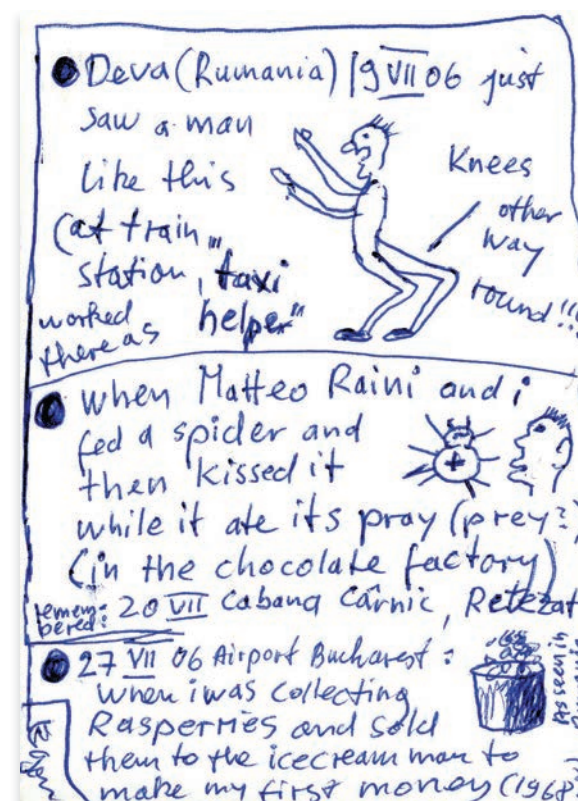 Deva (Rumania) 19 VII 06 just
saw a man
like this
(at train
station, "taxi
helper"
worked
there as
Knees
other
way
round!!!
when Matteo Raini and i
fed a spider and
then kissed it
while it ate its pray (prey?)
(in the chocolate factory)
remem-
bered:
20 VII Cabana Cârnic, Retezat
27 VII 06 Airport Bucharest:
when i was collecting
Rasperries and sold
them to the icecream man to
make my first money (1968)
As seen in